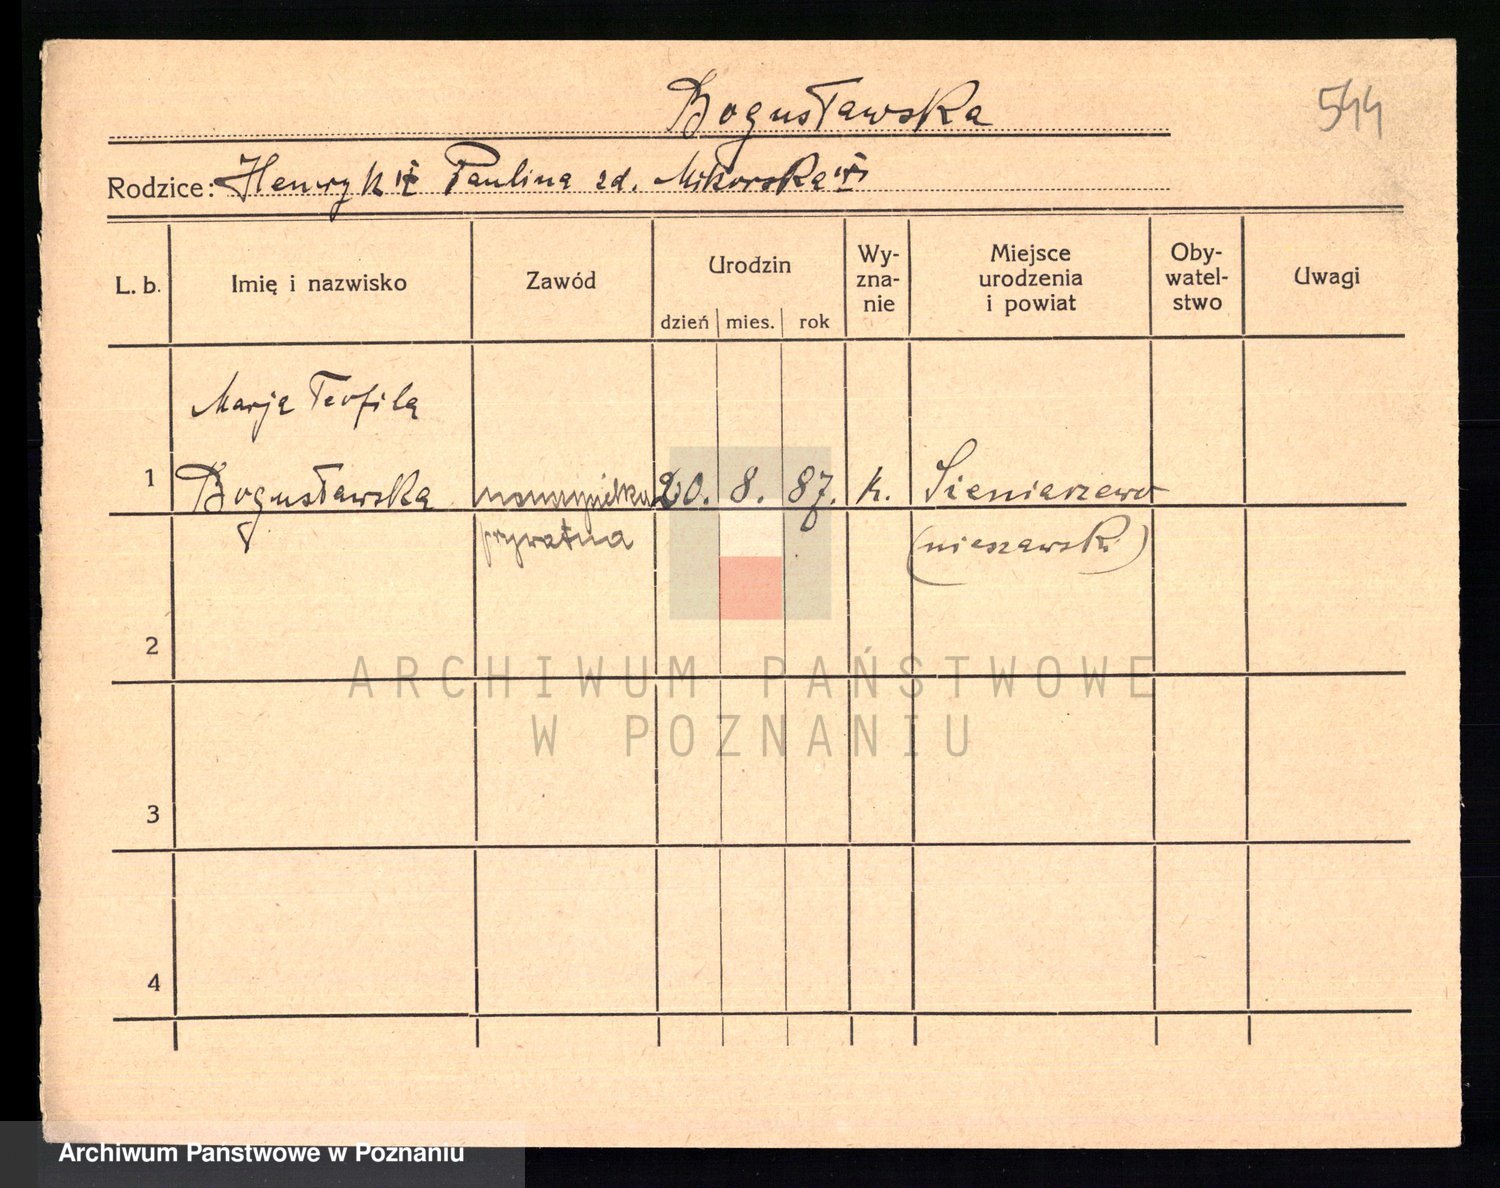 Bogusławska
544
Rodzice: Henryk i Paulina zd. Mikorska
L. b. Imię i nazwisko Zawód Urodzin dzień mies. rok Wy-zna-nie Miejsce urodzenia i powiat Oby-watel-stwo Uwagi
Marja Teofila
1 Bogusławska nauczycielka 20. 8. 87. k. Sieniarzewo
prywatna (nieszawski)
2
ARCHIWUM PAŃSTWOWE
W POZNANIU
3
4
Archiwum Państwowe w Poznaniu